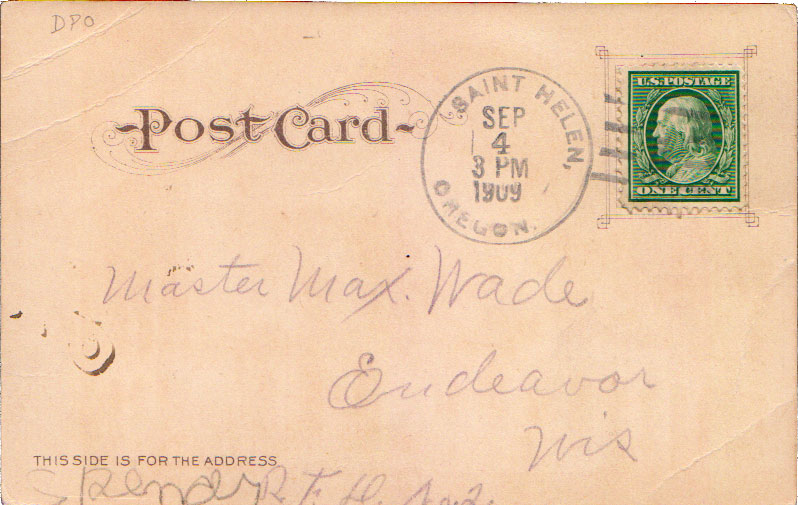 DPO
Post Card
SAINT HELEN,
SEP
4
3 PM
1909
OREGON.
U.S. POSTAGE
ONE CENT
Master Max. Wade
Endeavor
Wis
THIS SIDE IS FOR THE ADDRESS
R. F. D. No. 2.